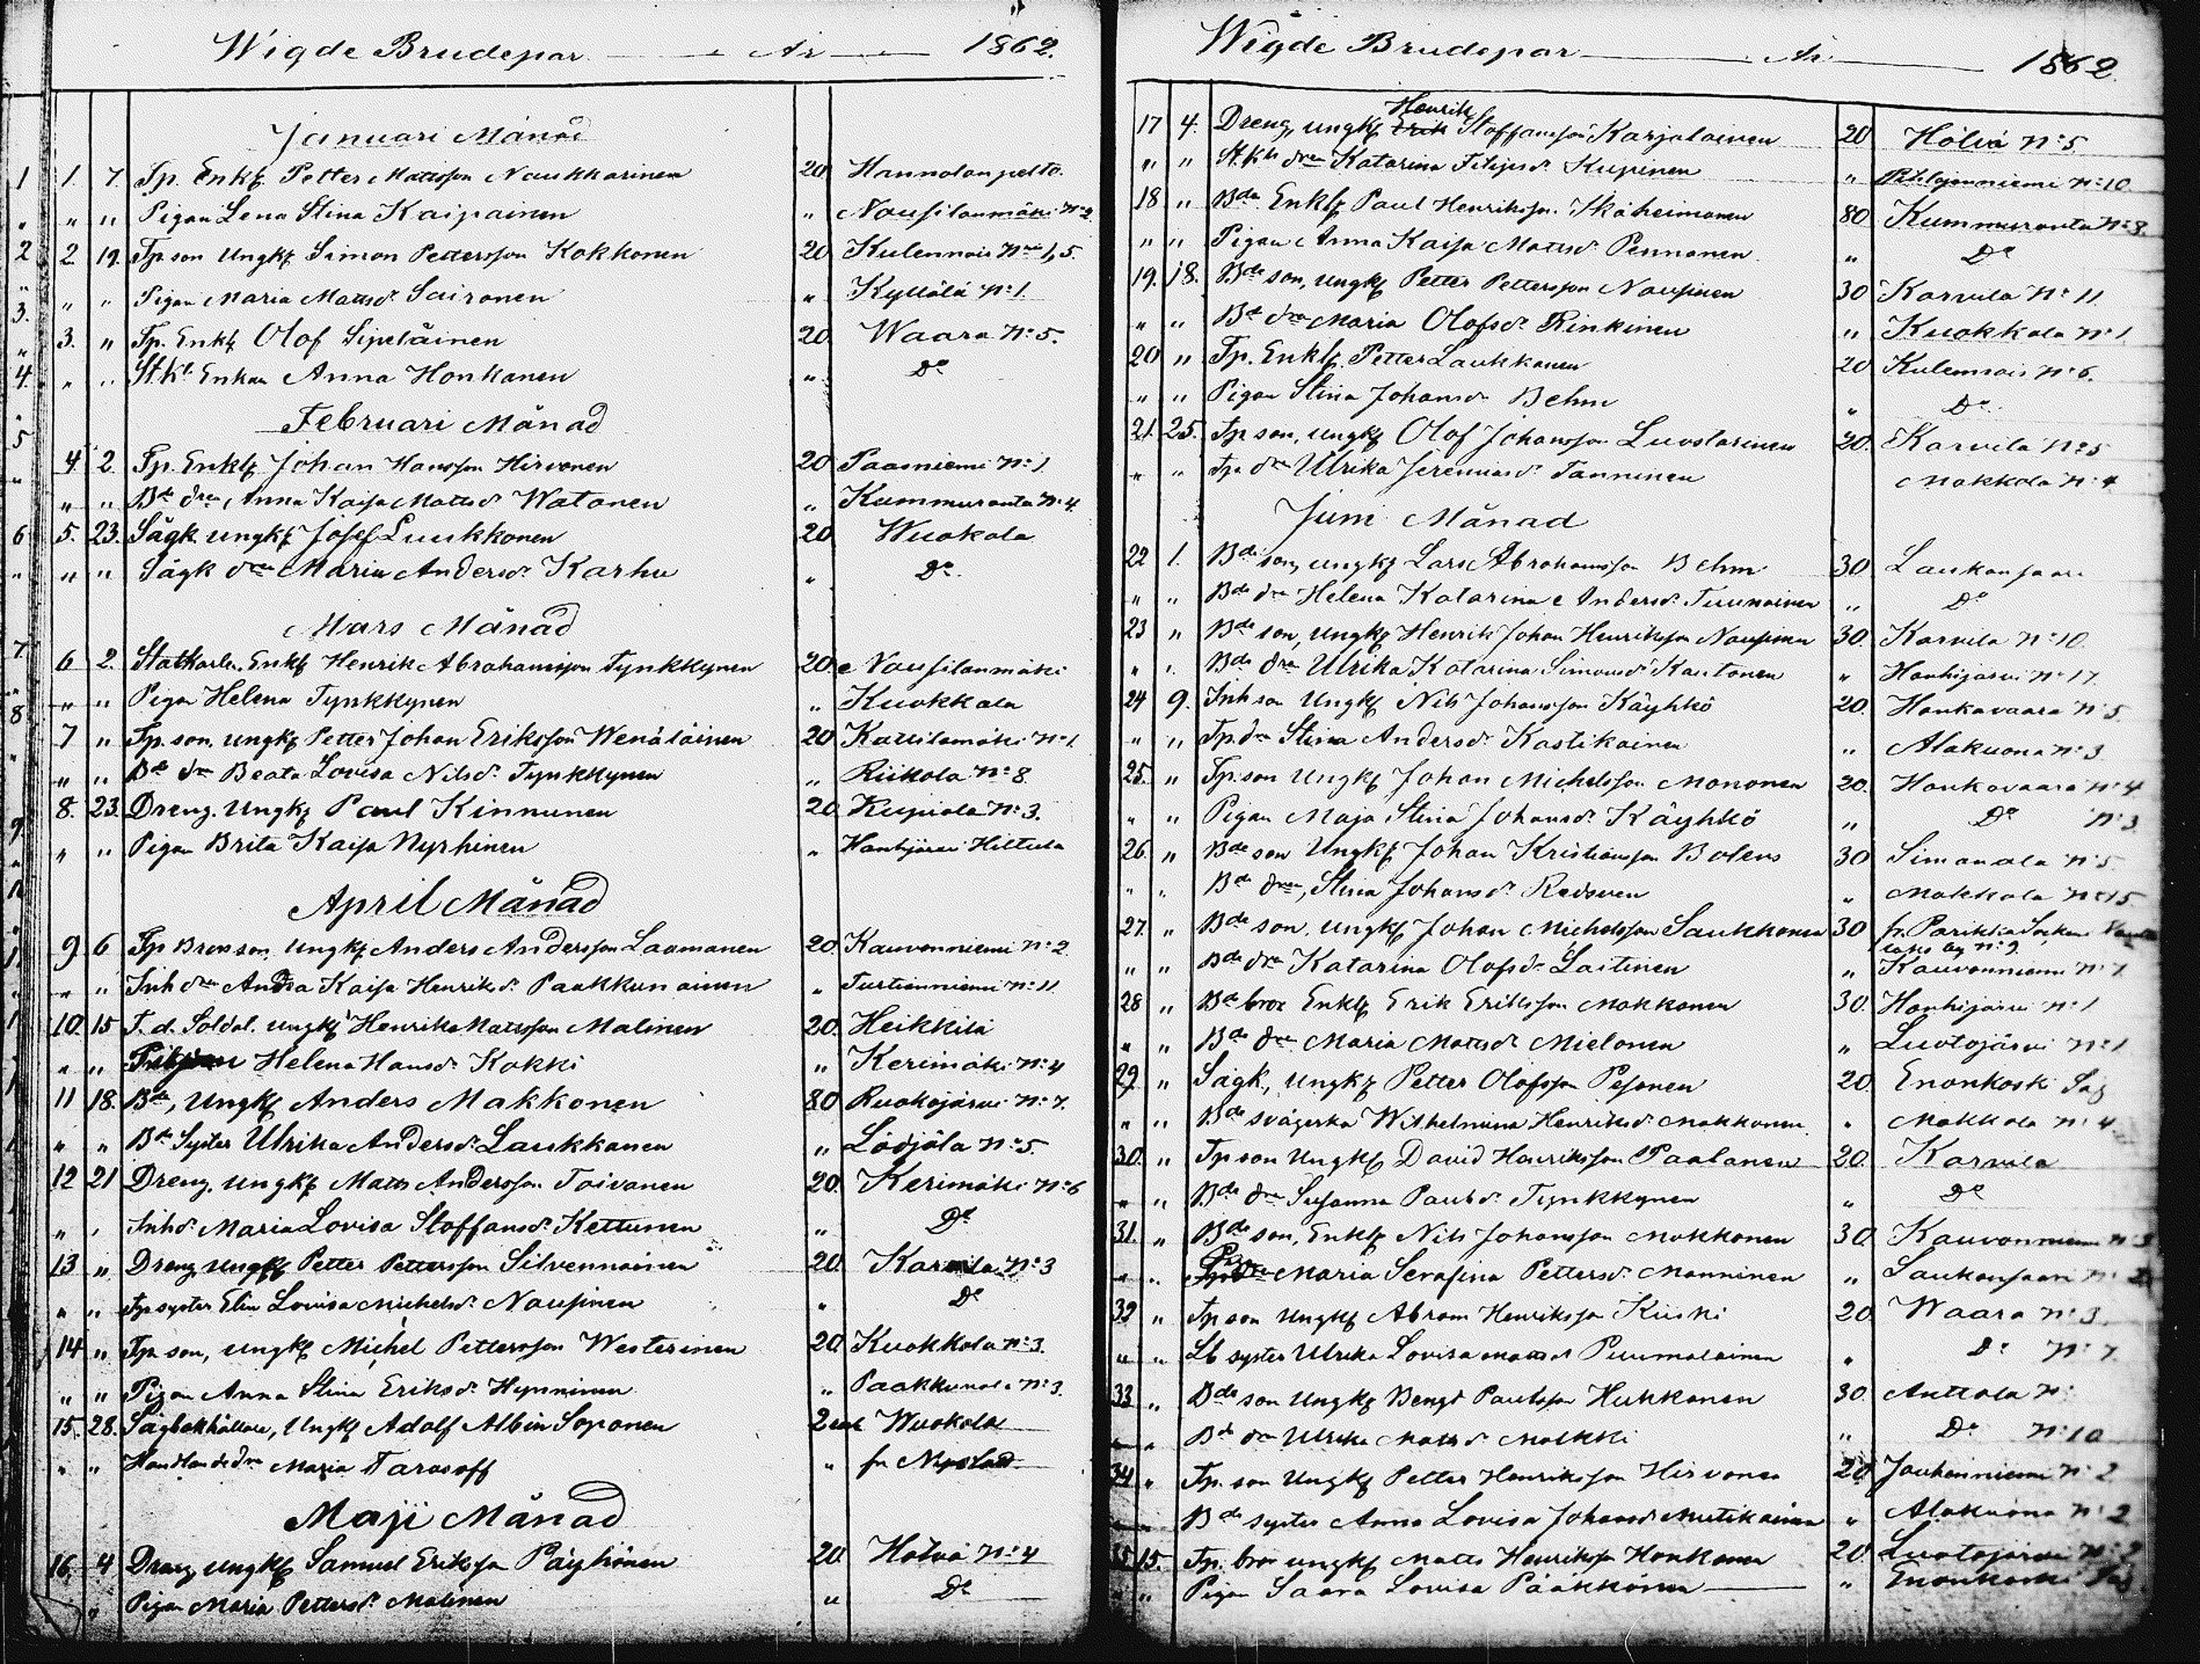 Wigde Brudepar År 1862.
Januari Månad
1 1. 7. Tp. Enkf. Petter Mattsson Naukkarinen 20 Hannolanpelto.
" " " Pigan Lena Stina Kaipainen " Nousilanmäki No 2
2 2. 19. Tp. son Ungkf Simon Pettersson Kokkonen 20 Kulennois No 1,5.
" " " Pigan Maria Mattsdr Saironen " Kyllölä No 1.
3. 3. " Tp. Enkf Olof Sipeläinen 20. Waara No 5.
" " " St.kl Enkan Anna Honkanen " Do
Februari Månad
4. 2. Tp. Enklf Johan Hansson Hirvonen 20 Paasniemi No 1
" " Bde dren Anna Kaisa Mattsdr Watanen " Kummuranta No 4.
5. 23. Sågk. Ungkf Josef Luukkonen 20 Wuokala
" " Sågk dren Maria Andersdr Karhu " Do.
Mars Månad
6 2. Statkarln. Enkf Henrik Abrahamsson Tynkkynen 20. Nousilanmäki
" " Pigan Helena Tynkkynen " Kuokkala
7 " Tp. son, ungkf Petter Johan Eriksson Wenäläinen 20 Kattilamäki No 1.
" " Bde dr Beata Lovisa Nilsdr Tynkkynen " Riikola No 8.
8. 23. Dreng. Ungkf Paul Kinnunen 20 Kupiala No 3.
" " Pigan Brita Kaisa Nyrhinen " Hanhijärvi Hiltula
April Månad
9 6 Tp Brorson, Ungkf Anders Andersson Laamanen 20. Kauvonniemi No 2.
" " Inh dren Anna Kaisa Henriksdr Paakkunainen " Turtianniemi No 11.
10. 15 F. d. Soldat. ungkf Henrik Mattsson Malinen 20. Heikkilä
" " Helena Hansdr Kokki " Kerimäki No 4
11 18. Bde, Ungkf Anders Makkonen 80 Ruokojärvi No 7.
" " Bde Syster Ulrika Andersdr Laukkanen " Lödjölä No 5.
12 21 Dreng, ungkf Matts Andersson Toivanen 20. Kerimäki No 6
" " Inhdr Maria Lovisa Stoffansdr Kettunen " Do
13 " Dreng, Ungkf Petter Pettersson Silvennoinen 20. Karvila No 3
" " Tp syster Elin Lovisa Michelsdr Nousinen " Do
14 " Tp. son, ungkf Michel Pettersson Westerinen 20. Kuokkala No 3.
" " Pigan Anna Stina Eriksdr Hynninen " Paakkunala No 3.
15. 28. Sågbokhållare, Ungkf Adolf Albin Soponen Wuokala
" " Handlande dren Maria Tarasoff " fr Nyslad
Maji Månad
16. 4 Dreng ungkf Samuel Eriksson Päyhönen 20. Holvä No 4
" Pigan Maria Pettersdr Malinen " Do
Wigde Brudepar År 1862.
17 4. Dreng, ungkf Henrik Stoffansson Karjalainen 20 Holvä No 5.
" " St.kls dren Katarina Filipsdr Kupinen " Pihlajaniemi No 10.
18 " Bde. Enklf Paul Henriksson Ikäheimonen 80 Kummuranta No 3.
" " Pigan Anna Kaisa Mattsdr Pennanen " Do
19. 18. Bde son, ungkf Petter Pettersson Nousinen 30 Karvila No 11
" " Bde dren Maria Olofsdr Rinkinen " Kuokkala No 1
20 " Tp. Enklf. Petter Laukkanen 20 Kulennois No 6.
" " Pigan Stina Johansdr Behm " Do.
21. 25. Tp son, ungkf Olof Johansson Luostarinen 20. Karvila No 5
" " Tp. dren Ulrika Jeremiasdr Tanninen Makkola No 4
Juni Månad
22 1. Bde son, ungkf Lars Abrahamsson Behm 30. Laukansaari
" " Bde dren Helena Katarina Andersdr Tuunainen " Do
23 " Bde son, ungkf Henrik Johan Henriksson Nousinen 30. Karvila No 10.
" " Bde dren Ulrika Katarina Simonsdr Kautonen " Hanhijärvi No 17.
24 9. Inh son Ungkf Nils Johansson Käyhkö 20. Honkavaara No 5.
" " Tp. dr Stina Andersdr Kostikainen " Alakuona No 3
25. " Tp. son Ungkf Johan Michelsson Mononen 20. Honkavaara No 4
" " Pigan Maja Stina Johansdr Käyhkö " Do No 3
26. " Bde son Ungkf Johan Kristiansson Bolens 30 Simanala No 5
" " Bde dren, Stina Johansdr Redsven " Makkola No 15
27. " Bde son, ungkf Johan Michelsson Saukkonen 30 fr. Parikkala Socken
" " Bde dren Katarina Olofsdr Laitinen " Kauvonniemi No 7
28 " Bde bror Enklf Erik Eriksson Makkonen 30. Hanhijärvi No 1
" " Bde dren Maria Mattsdr Mielonen " Luotojärvi No 1
29. " Sågk., ungkf Petter Olofsson Pesonen 20. Enonkoski Såg
" " Bde svägerska Wilhelmina Henriksdr Makkonen " Makkola No 4
30. " Tp son Ungkf David Henriksson Paalanen 20. Karvila
" " Bde dren Susanna Paulsdr Tynkkynen " Do
31. " Bde son, Enklf Nils Johansson Makkonen 30. Kauvonniemi No 3
" " Maria Serafina Pettersdr Manninen " Laukansaari No 2
32 " Tp son Ungkf Abram Henriksson Kiiski 20. Waara No 3.
" " Lb syster Ulrika Lovisa Mattsdr Puumalainen " Do No 7.
33 " Bde son Ungkf Bengt Paulsson Hukkanen 30. Anttola No
" " Bde dren Ulrika Mattsdr Malkki " Do No 10
34 " Tp. son Ungkf Petter Henriksson Hirvonen 20 Jouhenniemi No 2
" " Bde syster Anna Lovisa Johansdr Mutikainen " Alakuona No 2
35 15. Tp. bror ungkf Matts Henriksson Honkonen 20. Luotojärvi No 2
" " Pigan Saara Lovisa Pääkkönen " Enonkoski Såg